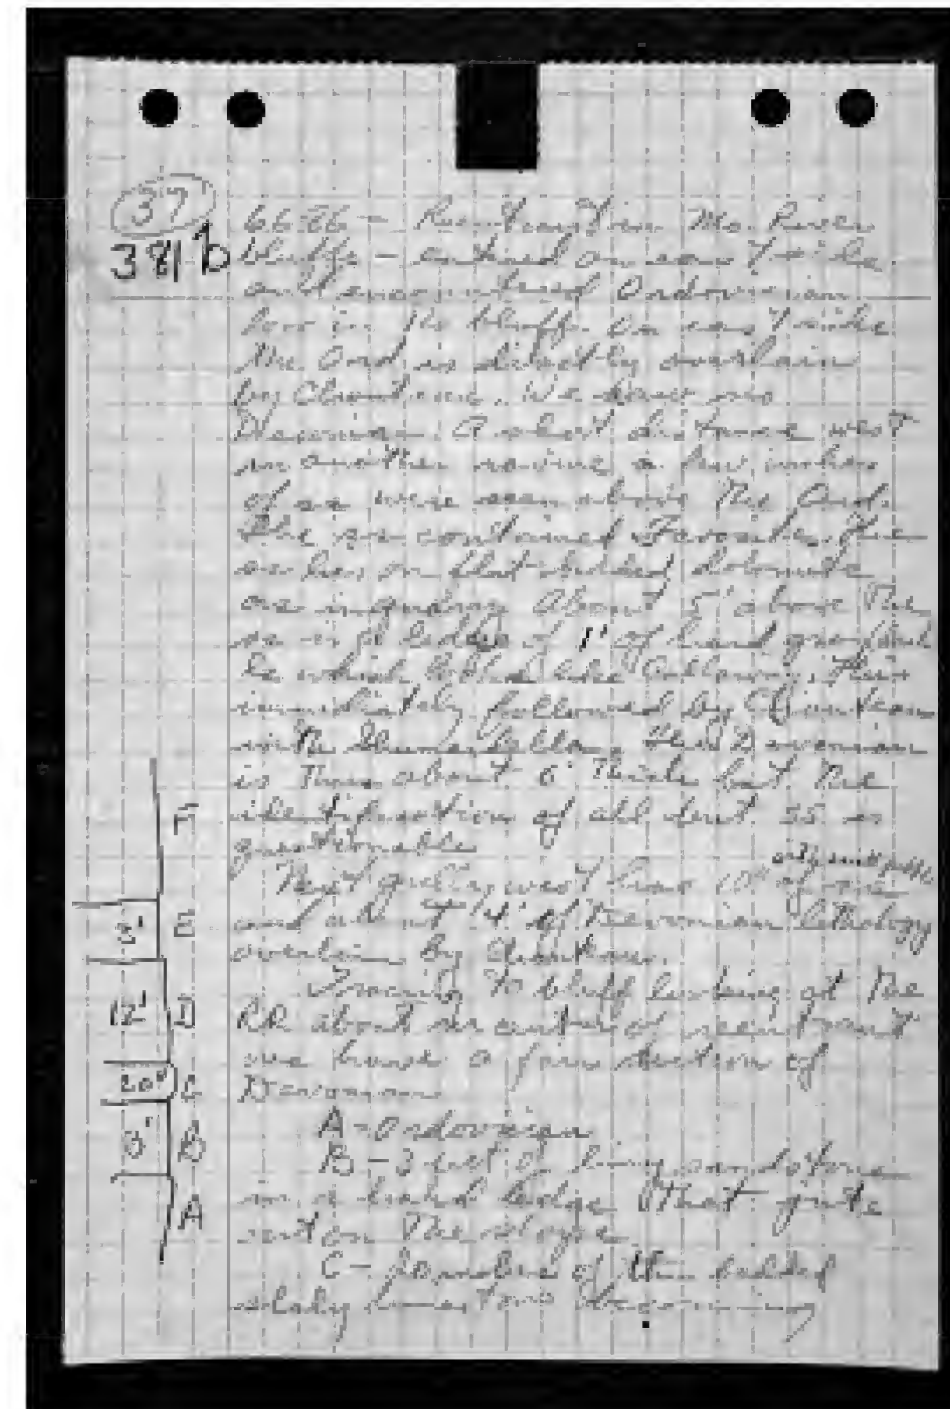 37
381b
6626 - Mo. River
bluffs - entered on east side
and encountered Ordovician
low in the bluff. On east side
the Ord. is directly overlain
by Chouteau. We saw no
Devonian. A short distance west
in another ravine a few inches
of ss were seen above the Ord.
The ss contained Favosites. The
ss lies on flat bedded dolomite
as in quarry. About 5' above the
ss is a ledge of 1' of hard gray
ls which looks like Callaway, this
immediately followed by Chouteau
with the Devonian
is thus about 6' thick but the
identification of all but ss is
questionable
Next gully west has 10" of ss
and about 4' of Devonian lithology
overlain by Chouteau.
Tracing to bluff looking at the
RR about center of
we have a fair section of
Devonian
A - Ordovician
B - 3 feet of limy sandstone
in a hard ledge that juts
out on the slope
C - 20 inches of thin bedded
shaly limestone becoming
F
3' E
12' D
20" C
3' B
A